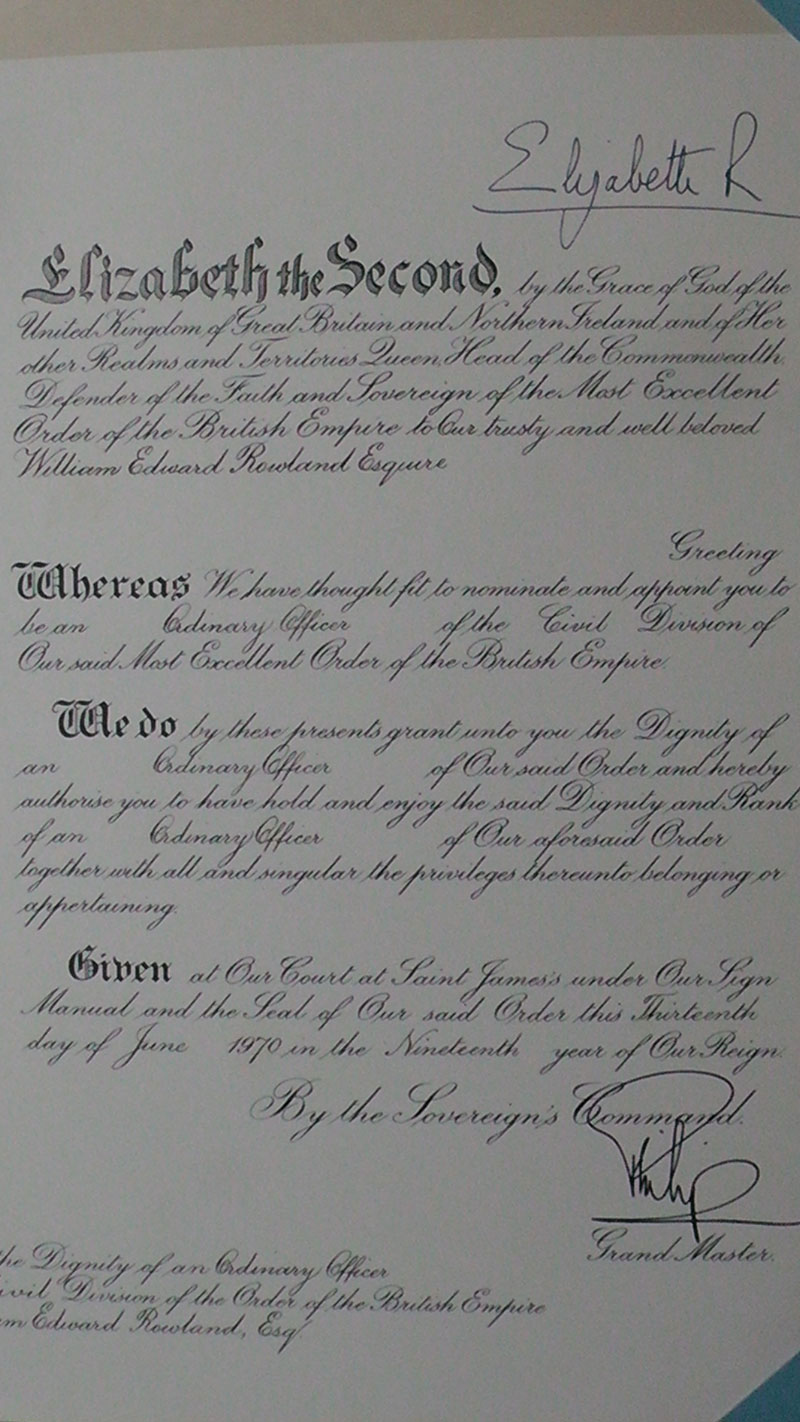 Elizabeth R
Elizabeth the Second, by the Grace of God of the
United Kingdom of Great Britain and Northern Ireland and of Her
other Realms and Territories Queen, Head of the Commonwealth
Defender of the Faith and Sovereign of the Most Excellent
Order of the British Empire to Our trusty and well beloved
William Edward Rowland Esquire
Greeting
Whereas We have thought fit to nominate and appoint you to
be an Ordinary Officer of the Civil Division of
Our said Most Excellent Order of the British Empire
We do by these presents grant unto you the Dignity of
an Ordinary Officer of Our said Order and hereby
authorise you to have hold and enjoy the said Dignity and Rank
of an Ordinary Officer of Our aforesaid Order
together with all and singular the privileges thereunto belonging or
appertaining.
Given at Our Court at Saint James's under Our Sign
Manual and the Seal of Our said Order this Thirteenth
day of June 1970 in the Nineteenth year of Our Reign.
By the Sovereign's Command.
Philip
Grand Master.
the Dignity of an Ordinary Officer
ivil Division of the Order of the British Empire
m Edward Rowland, Esq